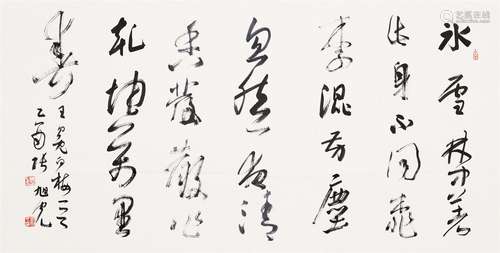 氷雪林中著
此身不同桃
李混芳塵
忽然一夜清
香發散作
乾坤萬里
春
王冕白梅一首
乙酉張旭光